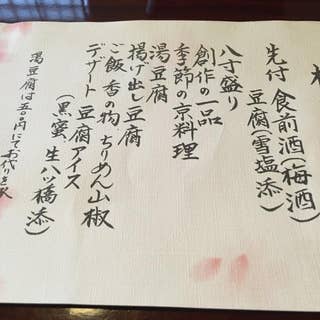 先付 食前酒(梅酒)
豆腐(雪塩添)
八寸盛り
創作の一品
季節の京料理
湯豆腐
揚げ出し豆腐
ご飯 香の物 ちりめん山椒
デザート 豆腐アイス
(黒蜜、生八ッ橋添)
湯豆腐は五〇〇円にてお代り